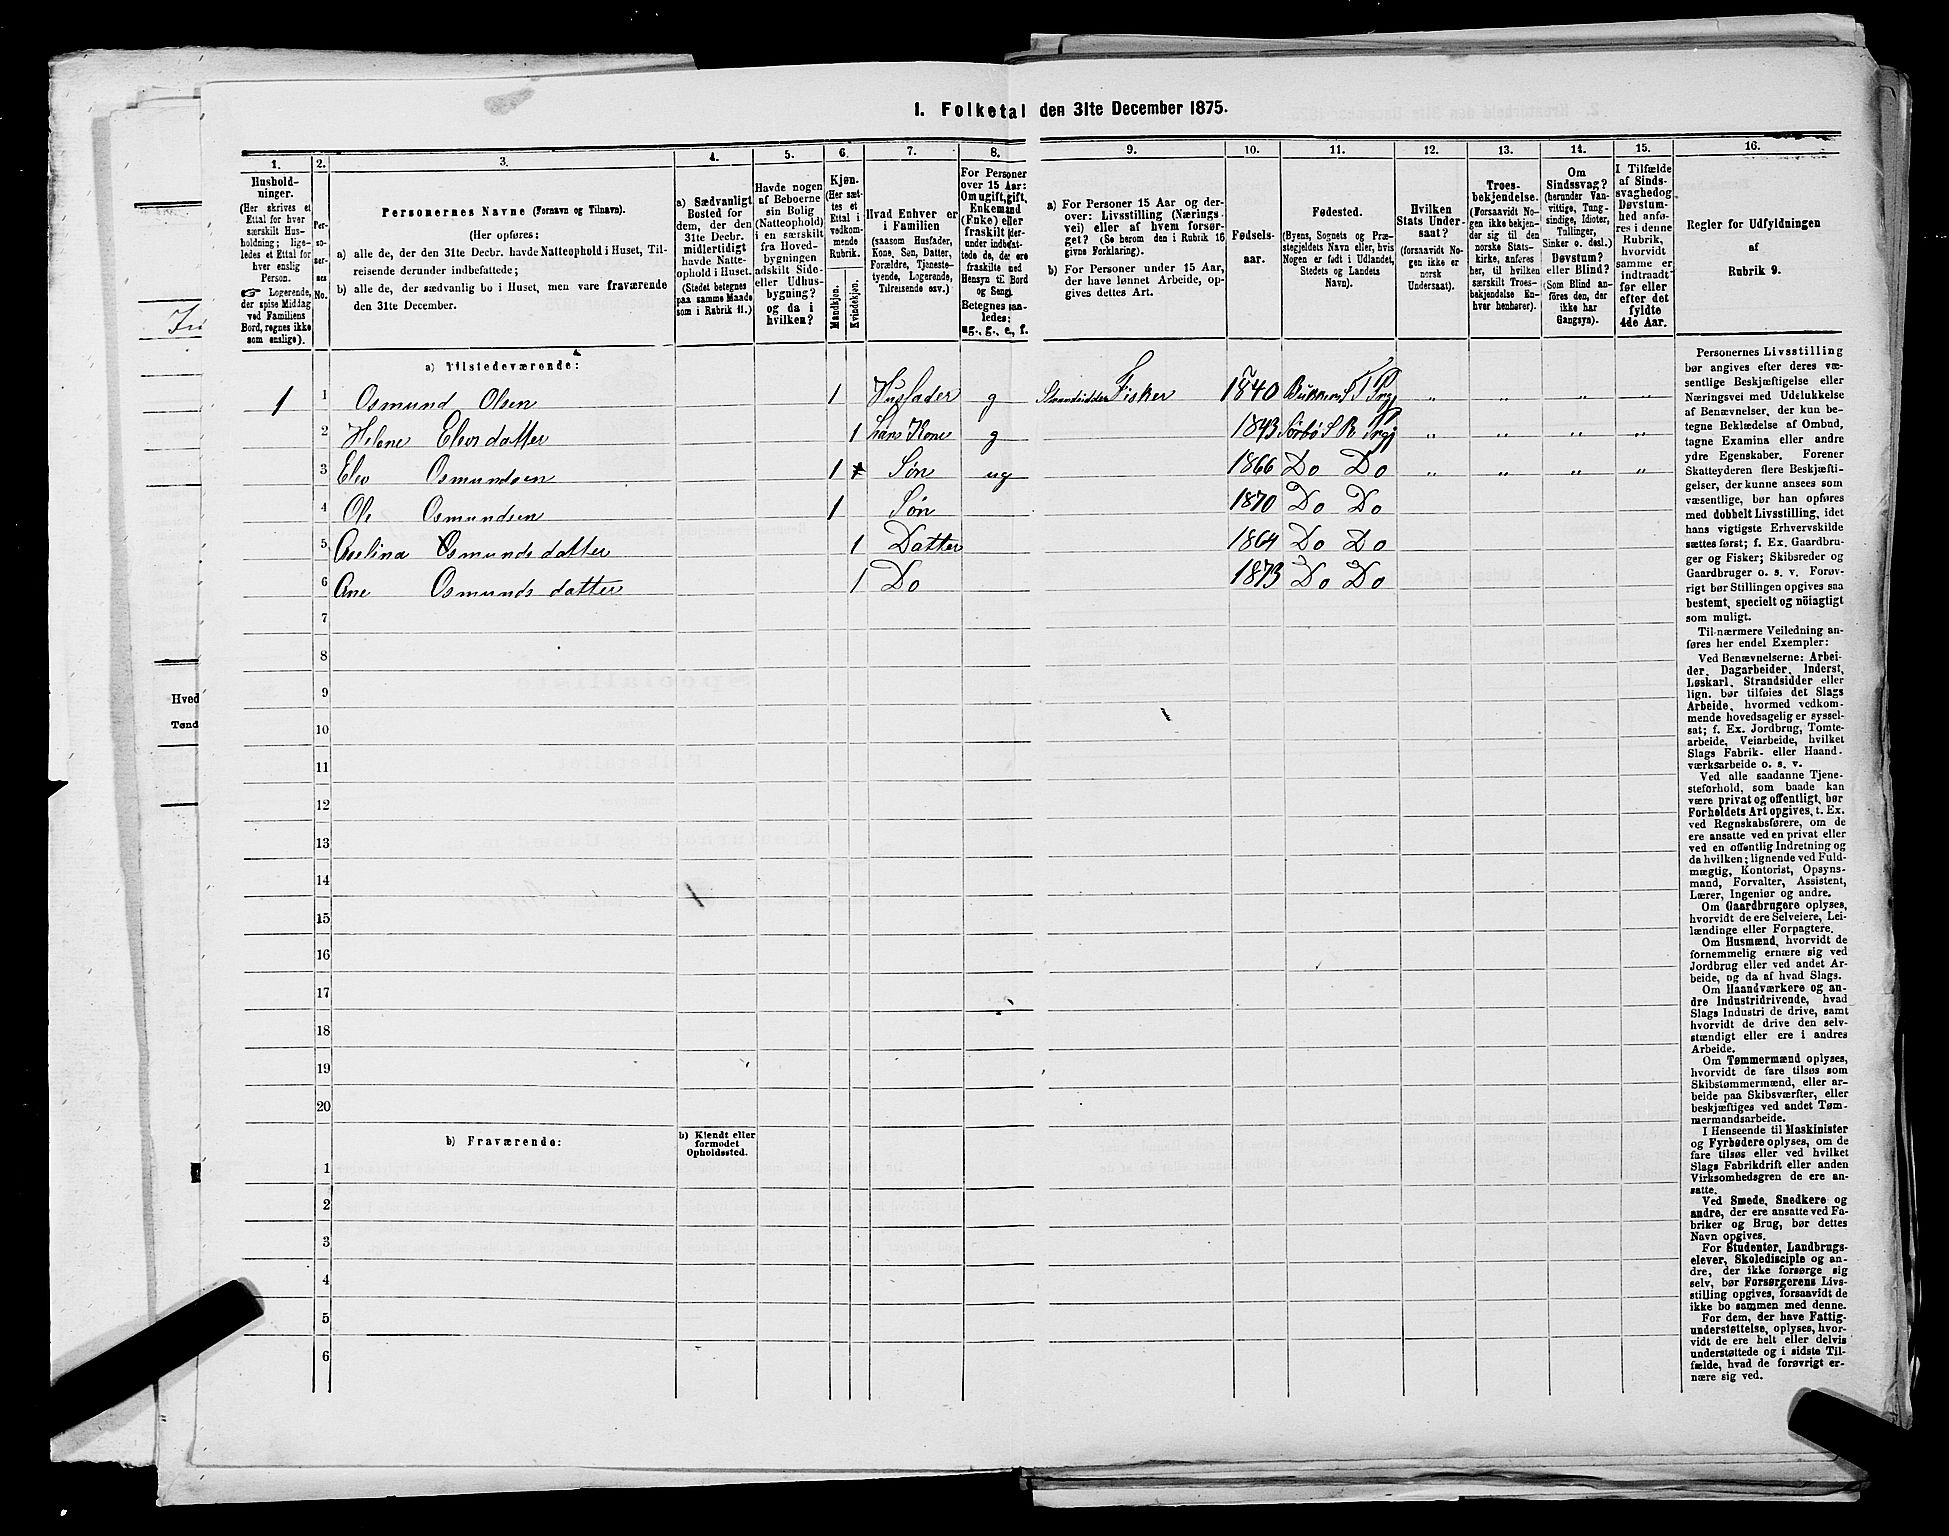 1. Folketal den 31te December 1875.
1. 2. 3. 4. 5. 6. 7. 8. 9. 10. 11. 12. 13. 14. 15. 16.
Hushold-
ninger.
(Her skrives et
Ettal for hver
særskilt Hus-
holdning; lige-
ledes et Ettal for
hver enslig
Person.
☞ Logerende,
der spise Middag
ved Familiens
Bord, regnes ikke
som enslige).
Per-
so-
ner-
nes
No.
Personernes Navne (Fornavn og Tilnavn).
(Her opføres:
a) alle de, der den 31te Decbr. havde Natteophold i Huset, Til-
reisende derunder indbefattede;
b) alle de, der sædvanlig bo i Huset, men vare fraværende
den 31te December.
a) Sædvanligt
Bosted for
dem, der den
31te Decbr.
midlertidigt
havde Natte-
ophold i Huset.
(Stedet betegnes
paa samme Maade
som i Rubrik 11.)
Havde nogen
af Beboerne
sin Bolig
(Natteophold)
i en særskilt
fra Hoved-
bygningen
adskilt Side-
eller Udhus-
bygning?
og da i
hvilken?
Kjøn.
(Her sæt-
tes et
Ettal i
vedkom-
mende
Rubrik.
Mandkjøn.
Kvindekjøn.
Hvad Enhver er
i Familien
(saasom Husfader,
Kone, Søn, Datter,
Forældre, Tjeneste-
tyende, Logerende,
Tilreisende osv.)
For Personer
over 15 Aar:
Om ugift, gift,
Enkemand
(Enke) eller
fraskilt (der-
under indbefat-
tede de, der ere
fraskilte med
Hensyn til Bord
og Seng).
Betegnes saa-
ledes:
ug., g., e., f.
a) For Personer 15 Aar og der-
over: Livsstilling (Nærings-
vei) eller af hvem forsør-
get? (Se herom den i Rubrik 16
givne Forklaring).
b) For Personer under 15 Aar,
der have lønnet Arbeide, op-
gives dettes Art.
Fødsels-
aar.
Fødested.
(Byens, Sognets og Præ-
stegjeldets Navn eller, hvis
Nogen er født i Udlandet,
Stedets og Landets
Navn).
Hvilken
Stats Under-
saat?
(forsaavidt No-
gen ikke er
norsk
Undersaat).
Troes-
bekjendelse.
(Forsaavidt No-
gen ikke bekjen-
der sig til den
norske Stats-
kirke, anføres
her, til hvilken
særskilt Troes-
bekjendelse En-
hver henhører).
Om
Sindssvag?
(herunder Van-
vittige, Tung-
sindige, Idioter,
Tullinger,
Sinker o. desl.)
Døvstum?
eller Blind?
(Som Blind an-
føres den, der
ikke har
Gangsyn).
I Tilfælde
af Sinds-
svaghed og
Døvstum-
hed anfø-
res i denne
Rubrik,
hvorvidt
samme er
indtraadt
før eller
efter det
fyldte
4de Aar.
Regler for Udfyldningen
af
Rubrik 9.
a) Tilstedeværende:
1 1 Osmund Olsen 1 Husfader g Strandsidder Fisker 1840 " " " "
2 Helene Elvsdatter 1 hans Kone g 1843 Sørbø S R Prgj " " " "
3 Elev Osmundsen 1 Søn ug 1866 Do Do " " " "
4 Ole Osmundsen 1 Søn 1870 Do Do
5 Aselina Osmundsdatter 1 Datter 1864 Do Do
6 Ane Osmundsdatter 1 Do 1873 Do Do
7
8
9
10
11
12
13
14
15
16
17
18
19
20
b) Fraværende:
b) Kjendt eller
formodet
Opholdssted.
1
2
3
4
5
6
Personernes Livsstilling
bør angives efter deres væ-
sentlige Beskjæftigelse eller
Næringsvei med Udelukkelse
af Benævnelser, der kun be-
tegne Beklædelse af Ombud,
tagne Examina eller andre
ydre Egenskaber. Forener
Skatteyderen flere Beskjæfti-
gelser, der kunne ansees som
væsentlige, bør han opføres
med dobbelt Livsstilling, idet
hans vigtigste Erhvervskilde
sættes først; f. Ex. Gaardbru-
ger og Fisker; Skibsreder og
Gaardbruger o. s. v. Forøv-
rigt bør Stillingen opgives saa
bestemt, specielt og nöiagtigt
som muligt.
Til nærmere Veiledning an-
føres her endel Exempler:
Ved Benævnelserne: Arbei-
der, Dagarbeider, Inderst,
Løskarl, Strandsidder eller
lign. bør tilføies det Slags
Arbeide, hvormed vedkom-
mende hovedsagelig er syssel-
sat; f. Ex. Jordbrug, Tomte-
arbeide, Veiarbeide, hvilket
Slags Fabrik- eller Haand-
værksarbeide o. s. v.
Ved alle saadanne Tjene-
steforhold, som baade kan
være privat og offentligt, bør
Forholdets Art opgives, t. Ex.
ved Regnskabsførere, om de
ere ansatte ved en privat eller
ved en offentlig Indretning og
da hvilken; lignende ved Fuld-
mægtig, Kontorist, Opsyns-
mand, Forvalter, Assistent,
Lærer, Ingeniør og andre.
Om Gaardbrugere oplyses,
hvorvidt de ere Selveiere, Lei-
lændinge eller Forpagtere.
Om Husmænd, hvorvidt de
fornemmelig ernære sig ved
Jordbrug eller ved andet Ar-
beide, og da af hvad Slags.
Om Haandværkere og an-
dre Industridrivende, hvad
Slags Industri de drive, samt
hvorvidt de drive den selv-
stændigt eller ere i andres
Arbeide.
Om Tømmermænd oplyses,
hvorvidt de fare tilsøs som
Skibstømmermænd, eller ar-
beide paa Skibsværfter, eller
beskjæftiges ved andet Tøm-
mermandsarbeide.
I Henseende til Maskinister
og Fyrbødere oplyses, om de
fare tilsøs eller ved hvilket
Slags Fabrikdrift eller anden
Virksomhedsgren de ere an-
satte.
Ved Smede, Snedkere og
andre, der ere ansatte ved Fa-
briker og Brug, bør dettes
Navn opgives.
For Studenter, Landbrugs-
elever, Skoledisciple og an-
dre, der ikke forsørge sig
selv, bør Forsørgerens Livs-
stilling opgives, forsaavidt de
ikke bo sammen med denne.
For dem, der have Fattig-
understøttelse, oplyses, hvor-
vidt de ere helt eller delvis
understøttede og i sidste Til-
fælde, hvad de forøvrigt er-
nære sig ved.
Hved
Tønd